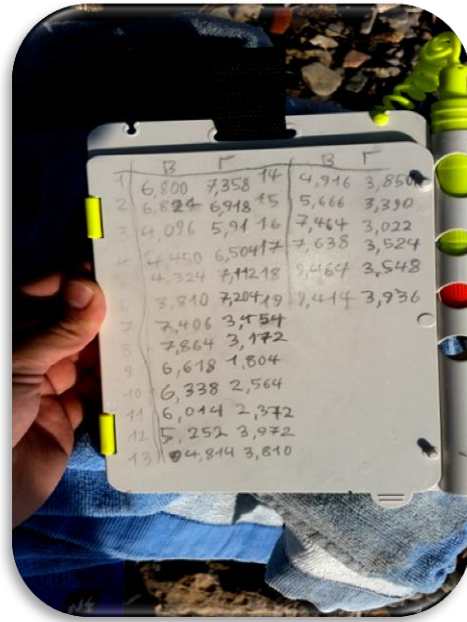 В Г В Г
1 6,800 7,358 14 4,916 3,850
2 6,824 6,918 15 5,666 3,390
3 4,096 5,91 16 7,464 3,022
4 4,450 6,504 17 7,638 3,524
5 4,324 7,112 18 9,464 3,548
6 3,810 7,204 19 9,414 3,936
7 7,406 3,454
8 7,864 3,172
9 6,618 1,804
10 6,338 2,564
11 6,014 2,372
12 5,252 3,972
13 4,814 3,810